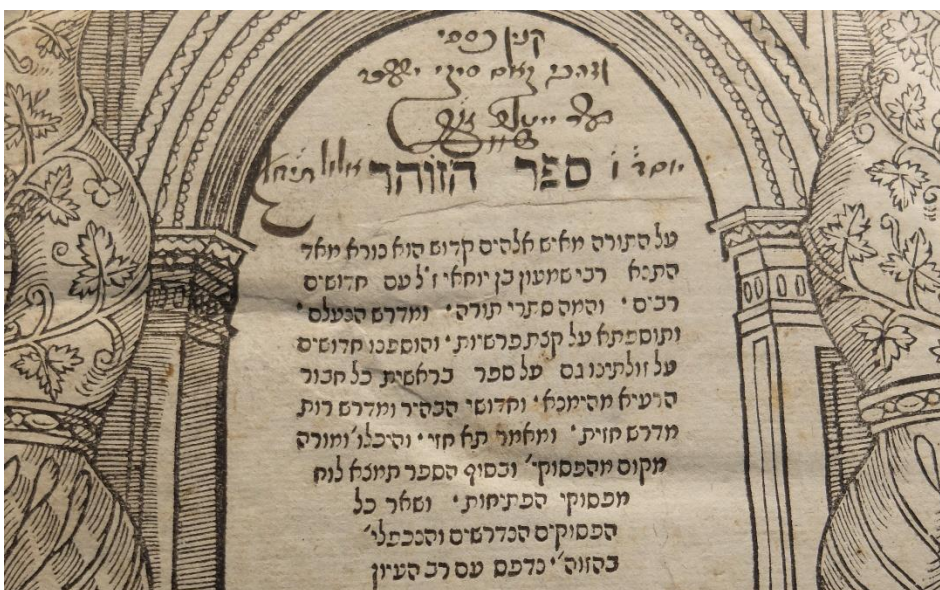 קנין כספי
ספר הזוהר
על התורה מאיש אלהים קדוש הוא נורא מאד
התנא רבי שמעון בן יוחאי ז"ל עם חדושים
רבים· והמה סתרי תורה· ומדרש הנעלם·
ותוספתא על קצת פרשיות· והוספנו חדושים
על זולתינו גם על ספר בראשית כל חבור
הרעיא מהימנא· וחדושי הבהיר ומדרש רות
מדרש חזית· ומאמר תא חזי· והיכלו' ומורה
מקום מהפסוקי' ובסוף הספר תמצא לוח
מפסוקי הפתיחות· ושאר כל
הפסוקים הנדרשים והנכפלי'
בהזוה"י נדפס עם רב העיון